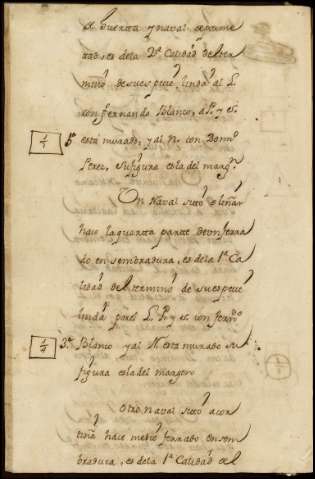 de huertta y naval expime
tado, es dela 2ª Calidad del ter
mino de su especie linda al L.
con fernando Blanco, al P. y S.
está murado, y al N. con Domº
Perez, su figura es la del margn.
Un Naval sitto
hace la quartta partte de un ferra
do en sembradura, es dela 1ª Ca
lidad del termino de su especie
linda por el L. P. y S. con ferndo
3º Blanco y al N. está murado su
figura es la del margen
Otro Naval sitto a cor
tiña hace medio ferrado en sem
bradura, es dela 1ª Calidad del